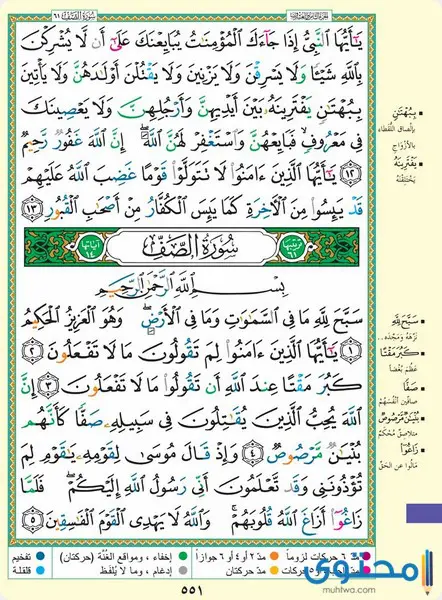 سُورَةُ الصَّفِّ ٦١
الجزء الثامن والعشرون
يَٰٓأَيُّهَا ٱلنَّبِيُّ إِذَا جَآءَكَ ٱلْمُؤْمِنَٰتُ يُبَايِعْنَكَ عَلَىٰٓ أَن لَّا يُشْرِكْنَ
بِٱللَّهِ شَيْـًٔا وَلَا يَسْرِقْنَ وَلَا يَزْنِينَ وَلَا يَقْتُلْنَ أَوْلَٰدَهُنَّ وَلَا يَأْتِينَ
بِبُهْتَٰنٍ يَفْتَرِينَهُۥ بَيْنَ أَيْدِيهِنَّ وَأَرْجُلِهِنَّ وَلَا يَعْصِينَكَ
فِى مَعْرُوفٍ فَبَايِعْهُنَّ وَٱسْتَغْفِرْ لَهُنَّ ٱللَّهَ إِنَّ ٱللَّهَ غَفُورٌ رَّحِيمٌ
١٢ يَٰٓأَيُّهَا ٱلَّذِينَ ءَامَنُوا۟ لَا تَتَوَلَّوْا۟ قَوْمًا غَضِبَ ٱللَّهُ عَلَيْهِمْ
قَدْ يَئِسُوا۟ مِنَ ٱلْءَاخِرَةِ كَمَا يَئِسَ ٱلْكُفَّارُ مِنْ أَصْحَٰبِ ٱلْقُبُورِ ١٣
ترتيبها ٦١ سُورَةُ الصَّفِّ آياتها ١٤
بِسْمِ ٱللَّهِ ٱلرَّحْمَٰنِ ٱلرَّحِيمِ
سَبَّحَ لِلَّهِ مَا فِى ٱلسَّمَٰوَٰتِ وَمَا فِى ٱلْأَرْضِ وَهُوَ ٱلْعَزِيزُ ٱلْحَكِيمُ
١ يَٰٓأَيُّهَا ٱلَّذِينَ ءَامَنُوا۟ لِمَ تَقُولُونَ مَا لَا تَفْعَلُونَ ٢
كَبُرَ مَقْتًا عِندَ ٱللَّهِ أَن تَقُولُوا۟ مَا لَا تَفْعَلُونَ ٣ إِنَّ
ٱللَّهَ يُحِبُّ ٱلَّذِينَ يُقَٰتِلُونَ فِى سَبِيلِهِۦ صَفًّا كَأَنَّهُم
بُنْيَٰنٌ مَّرْصُوصٌ ٤ وَإِذْ قَالَ مُوسَىٰ لِقَوْمِهِۦ يَٰقَوْمِ لِمَ
تُؤْذُونَنِى وَقَد تَّعْلَمُونَ أَنِّى رَسُولُ ٱللَّهِ إِلَيْكُمْ فَلَمَّا
زَاغُوٓا۟ أَزَاغَ ٱللَّهُ قُلُوبَهُمْ وَٱللَّهُ لَا يَهْدِى ٱلْقَوْمَ ٱلْفَٰسِقِينَ ٥
بِبُهْتَٰنٍ
بإلصاق اللقطاء
بالأزواج
يَفْتَرِينَهُ
يختلقنه
سَبَّحَ لِلَّهِ
نزهه ومجده..
كَبُرَ مَقْتًا
عظم بغضا
صَفًّا
صافين أنفسهم
بُنْيَٰنٌ مَّرْصُوصٌ
متلاصق محكم
زَاغُوا
مالوا عن الحق
٦ حركات لزوماً مدّ ٢ أو ٤ أو ٦ جوازاً إخفاء، ومواقع الغُنَّة (حركتان) تفخيم
حركات مدّ حركتان إدغام، وما لا يُلفَظ قلقلة
محتوى
muhtwa.com
٥٥١